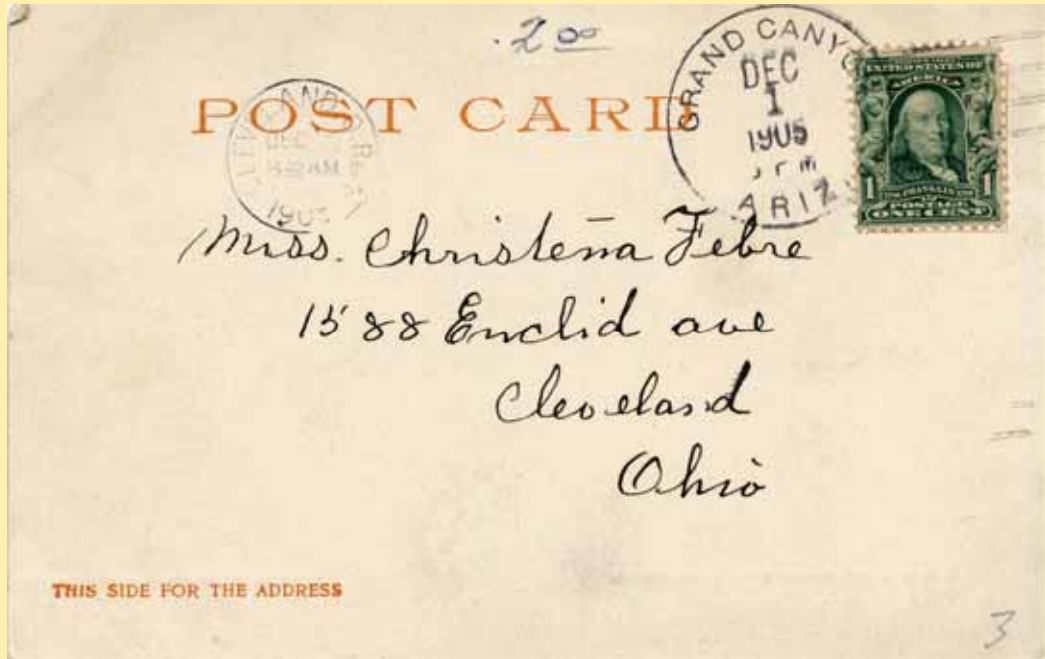 .2 00
POST CARD
GRAND CANYO
DEC
1
1905
ARIZ
UNITED STATES OF
AMERICA
1 1
FRANKLIN
POSTAGE
ONE CENT
CLEVELAND
DEC
AM
190
Miss. Christena Febre
1588 Euclid ave
Cleveland
Ohio
THIS SIDE FOR THE ADDRESS
3